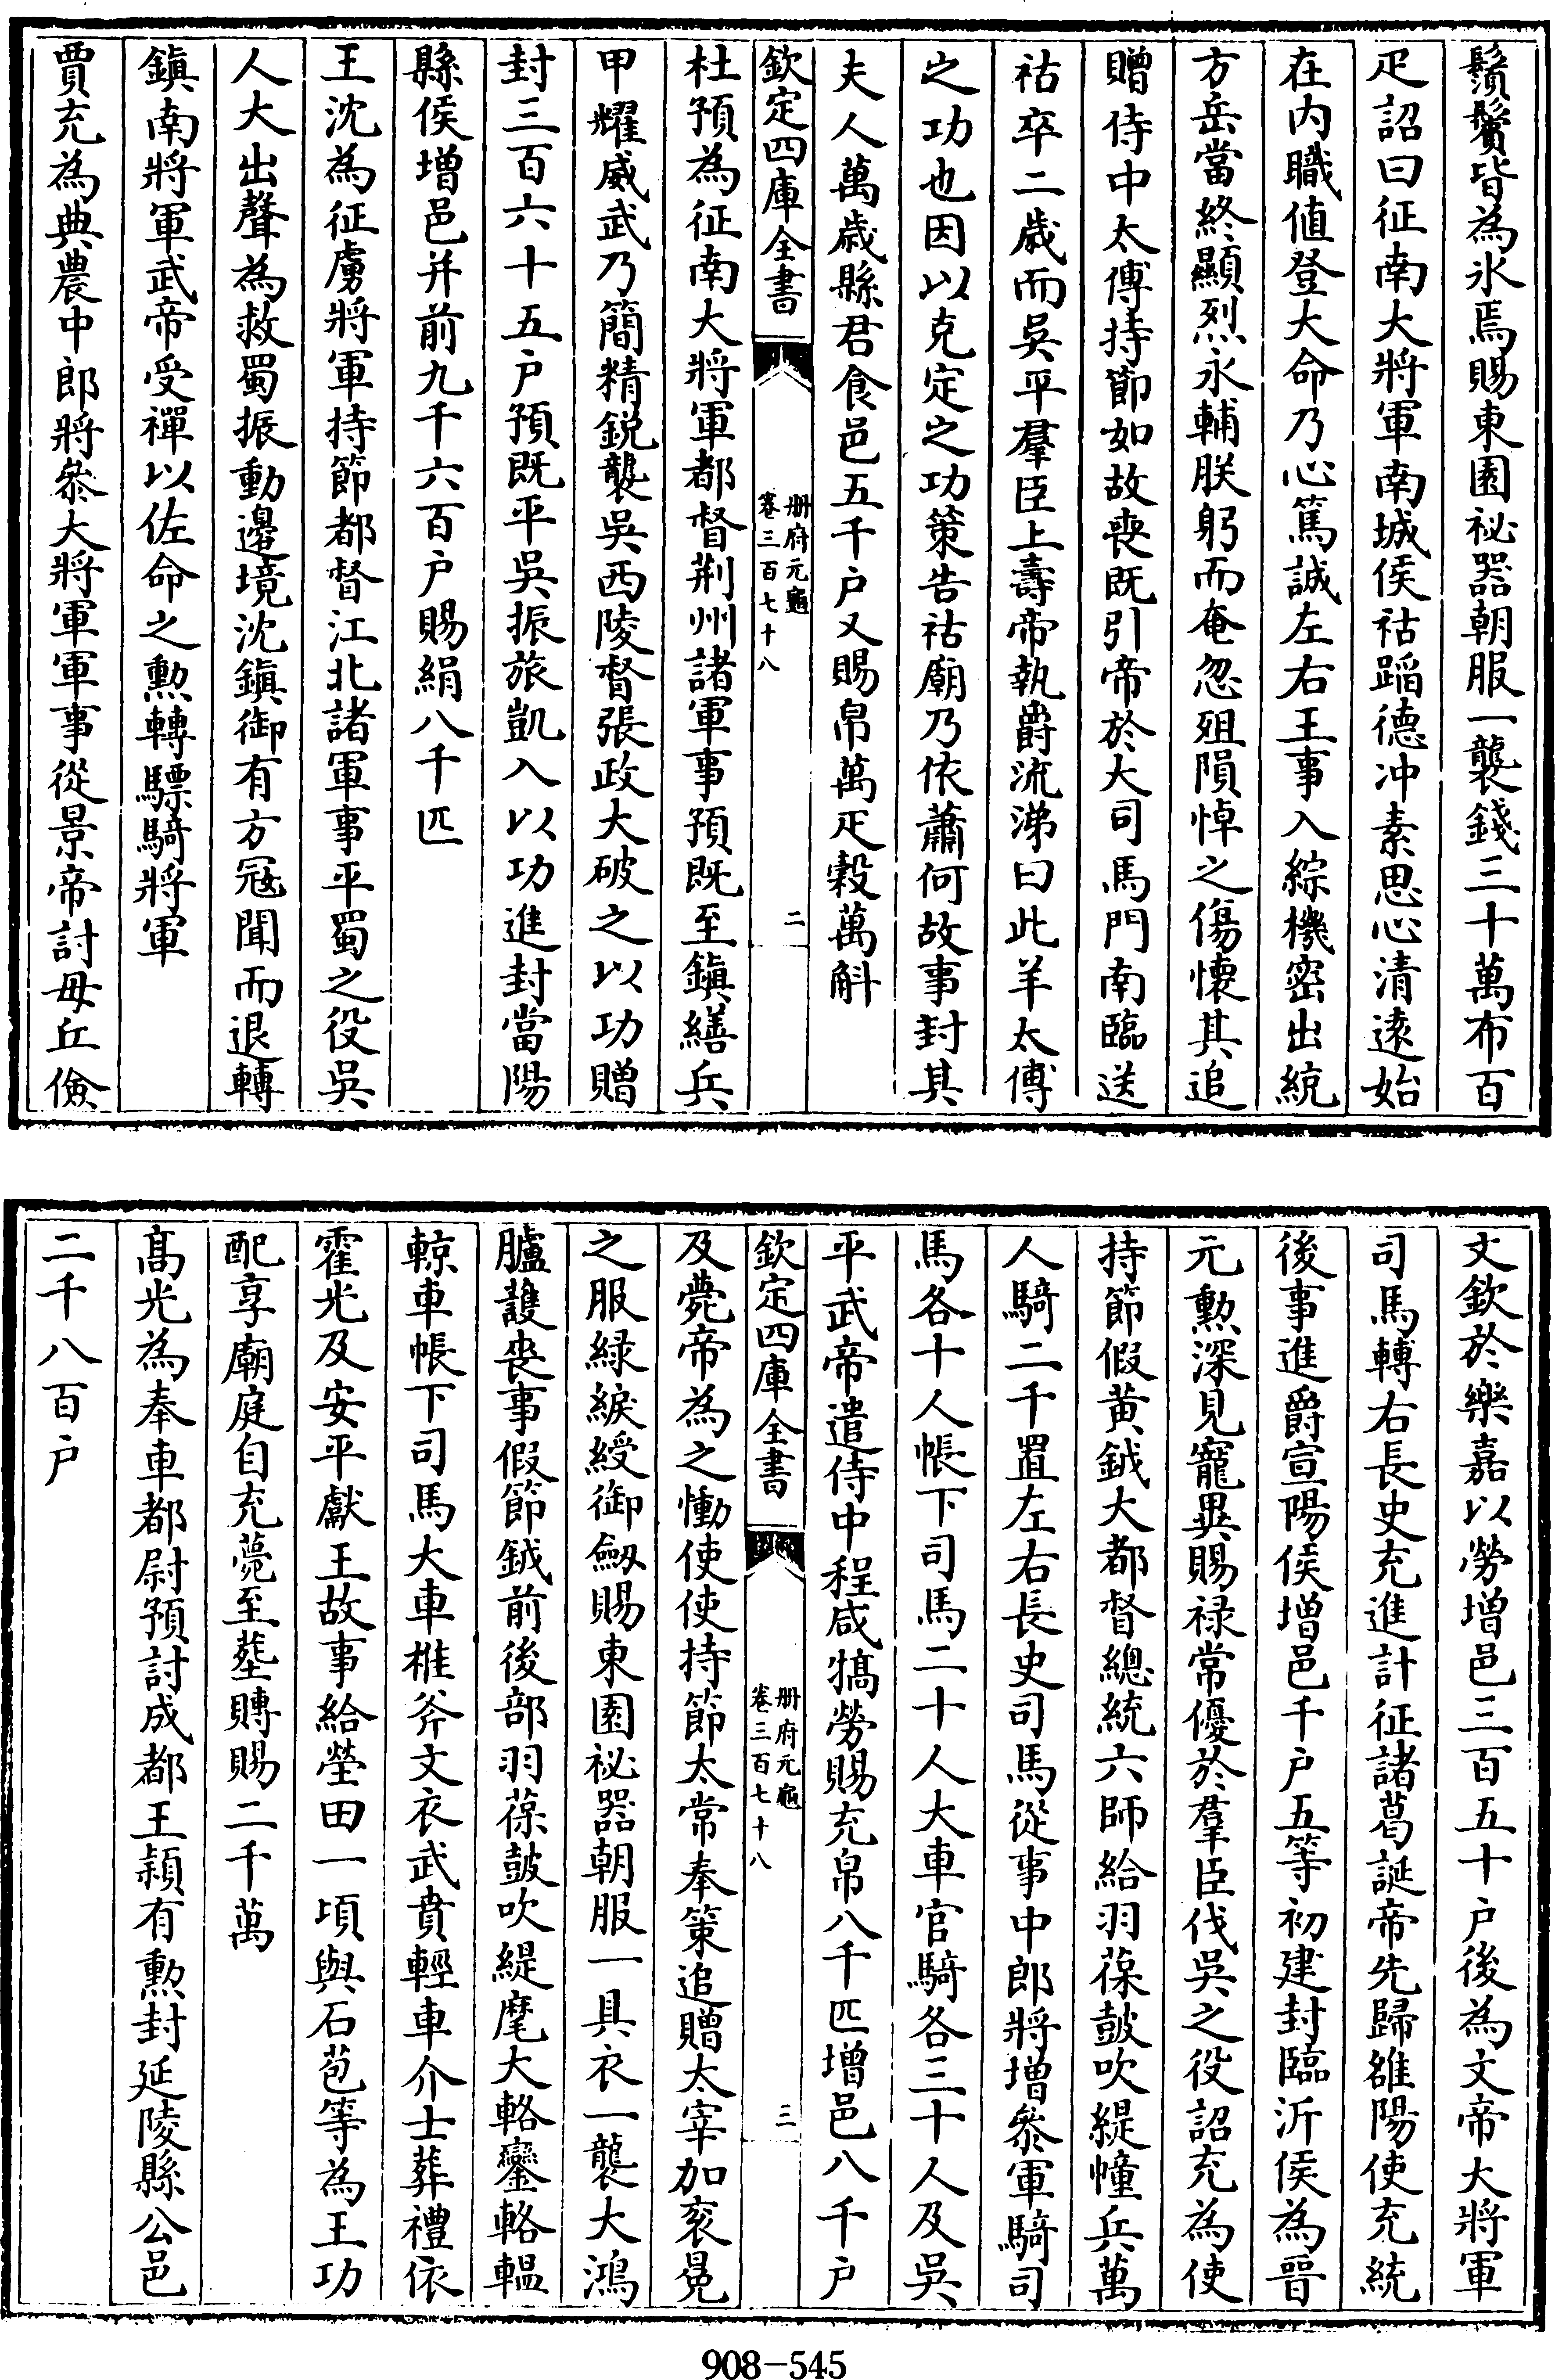 鬚鬢皆為氷焉賜東園祕器朝服一襲錢三十萬布百
疋詔曰征南大將軍南城侯祜蹈德冲素思心清逺始
在内職值登大命乃心篤誠左右王事入綜機密出統
方岳當終顯烈永輔朕躬而奄忽殂隕悼之傷懐其追
贈侍中太傅持節如故喪既引帝於大司馬門南臨送
祜卒二歳而吳平羣臣上壽帝執爵流涕曰此羊太傅
之功也因以克定之功策告祜廟乃依蕭何故事封其
夫人萬歳縣君食邑五千户又賜帛萬疋穀萬斛
欽定四庫全書
册府元龜
卷三百七十八
二
杜預為征南大將軍都督荆州諸軍事預既至鎮繕兵
甲耀威武乃簡精鋭襲吳西陵督張政大破之以功贈
封三百六十五户預既平吳振旅凱入以功進封當陽
縣侯增邑并前九千六百户賜絹八千匹
王沈為征虜將軍持節都督江北諸軍事平蜀之役吳
人大出聲為救蜀振動邉境沈鎮御有方冦聞而退轉
鎮南將軍武帝受禪以佐命之勲轉驃騎將軍
賈充為典農中郎將叅大將軍軍事從景帝討毋丘儉
文欽於樂嘉以勞增邑三百五十户後為文帝大將軍
司馬轉右長史充進計征諸葛誕帝先歸雒陽使充統
後事進爵宣陽侯增邑千户五等初建封臨沂侯為晉
元勲深見寵異賜禄常優於羣臣伐吳之役詔充為使
持節假黄鉞大都督總統六師給羽葆鼓吹緹幢兵萬
人騎二千置左右長史司馬從事中郎將增叅軍騎司
馬各十人帳下司馬二十人大車官騎各三十人及吳
平武帝遣侍中程咸犒勞賜充帛八千匹增邑八千户
欽定四庫全書
册府元龜
卷三百七十八
三
及薨帝為之慟使使持節太常奉策追贈太宰加衮冕
之服緑綟綬御劒賜東園祕器朝服一具衣一襲大鴻
臚護喪事假節鉞前後部羽葆鼓吹緹麾大輅鑾輅轀
輬車帳下司馬大車椎斧文衣武賁輕車介士葬禮依
霍光及安平獻王故事給塋田一頃與石苞等為王功
配享廟庭自充薨至塟賻賜二千萬
髙光為奉車都尉預討成都王穎有勲封延陵縣公邑
二千八百户
908-545